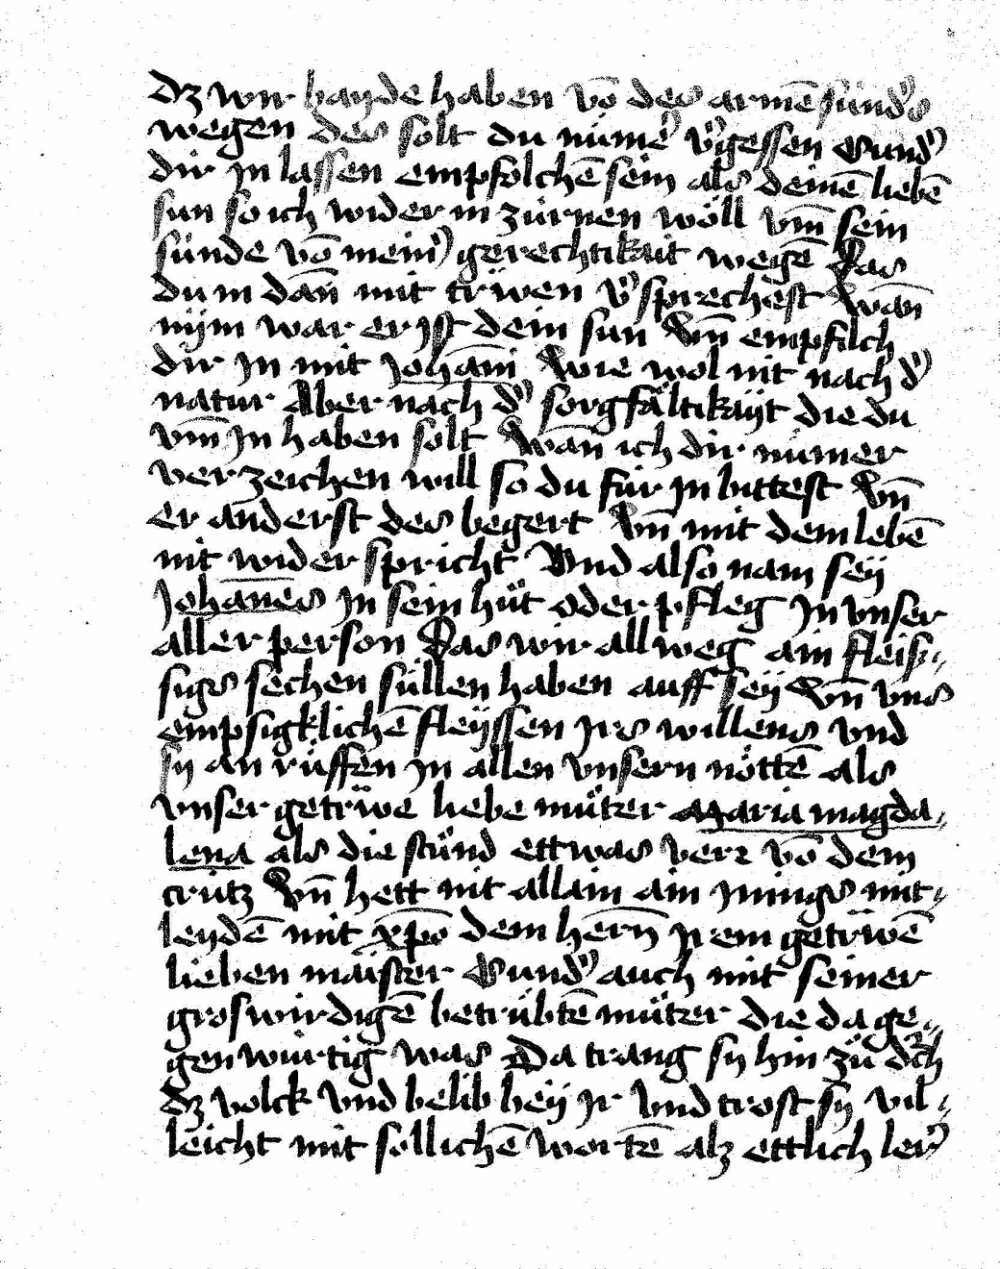 dz wir bayde haben vō des armē sünds̾
wegen des solt du nümer̾ v̾gessen Sund̾
dir jn lassen empfolchē sein als deinē liebē
sun so ich wider in zürnen wöll vm̄ sein
sünde vō mein̾ gerechtikait wegē Das
du in dan̄ mit trüwen v̾sprechest Wan̄
nÿm war er jst dein sun Vn̄ empfilch
dir jn mit Johān̄i Wie wol nit nach d̾
natur Aber nach d̾ sorgfältikaÿt die du
vm̄ jn haben solt Wan̄ ich dir nümer
verzeichen will so du für jn bittest Vn̄
er anderst des begert Vn̄ mit dem lebē
nit widerspricht Vnd also nam seÿ
Johān̄es jn sein hůt oder pfleg jn vnser
aller person Das wir allweg ain fleis„
sigs sechen süllen haben auff seÿ Vn̄ vns
empsigklichē fleÿssen jrs willens vnd
sÿ an rüffen jn allen vnsern nöttē als
vnser getrüwe liebe můter Maria magda„
lena als die stůnd ettwas verr vō dem
crütz Vn̄ hett nit allain ain jnnigs mit„
leydē mit xp̄o dem hern̄ jrem getrüwē
lieben maister Sund̾ auch mit seiner
groswirdigē betrübtē můter Die da ge„
genwürtig was Da trang sÿ hin zů dch̾
dz volck vnd belib beÿ jr Vnd trost sÿ vil„
leicht mit sollichē wortē alz ettlich ler̾